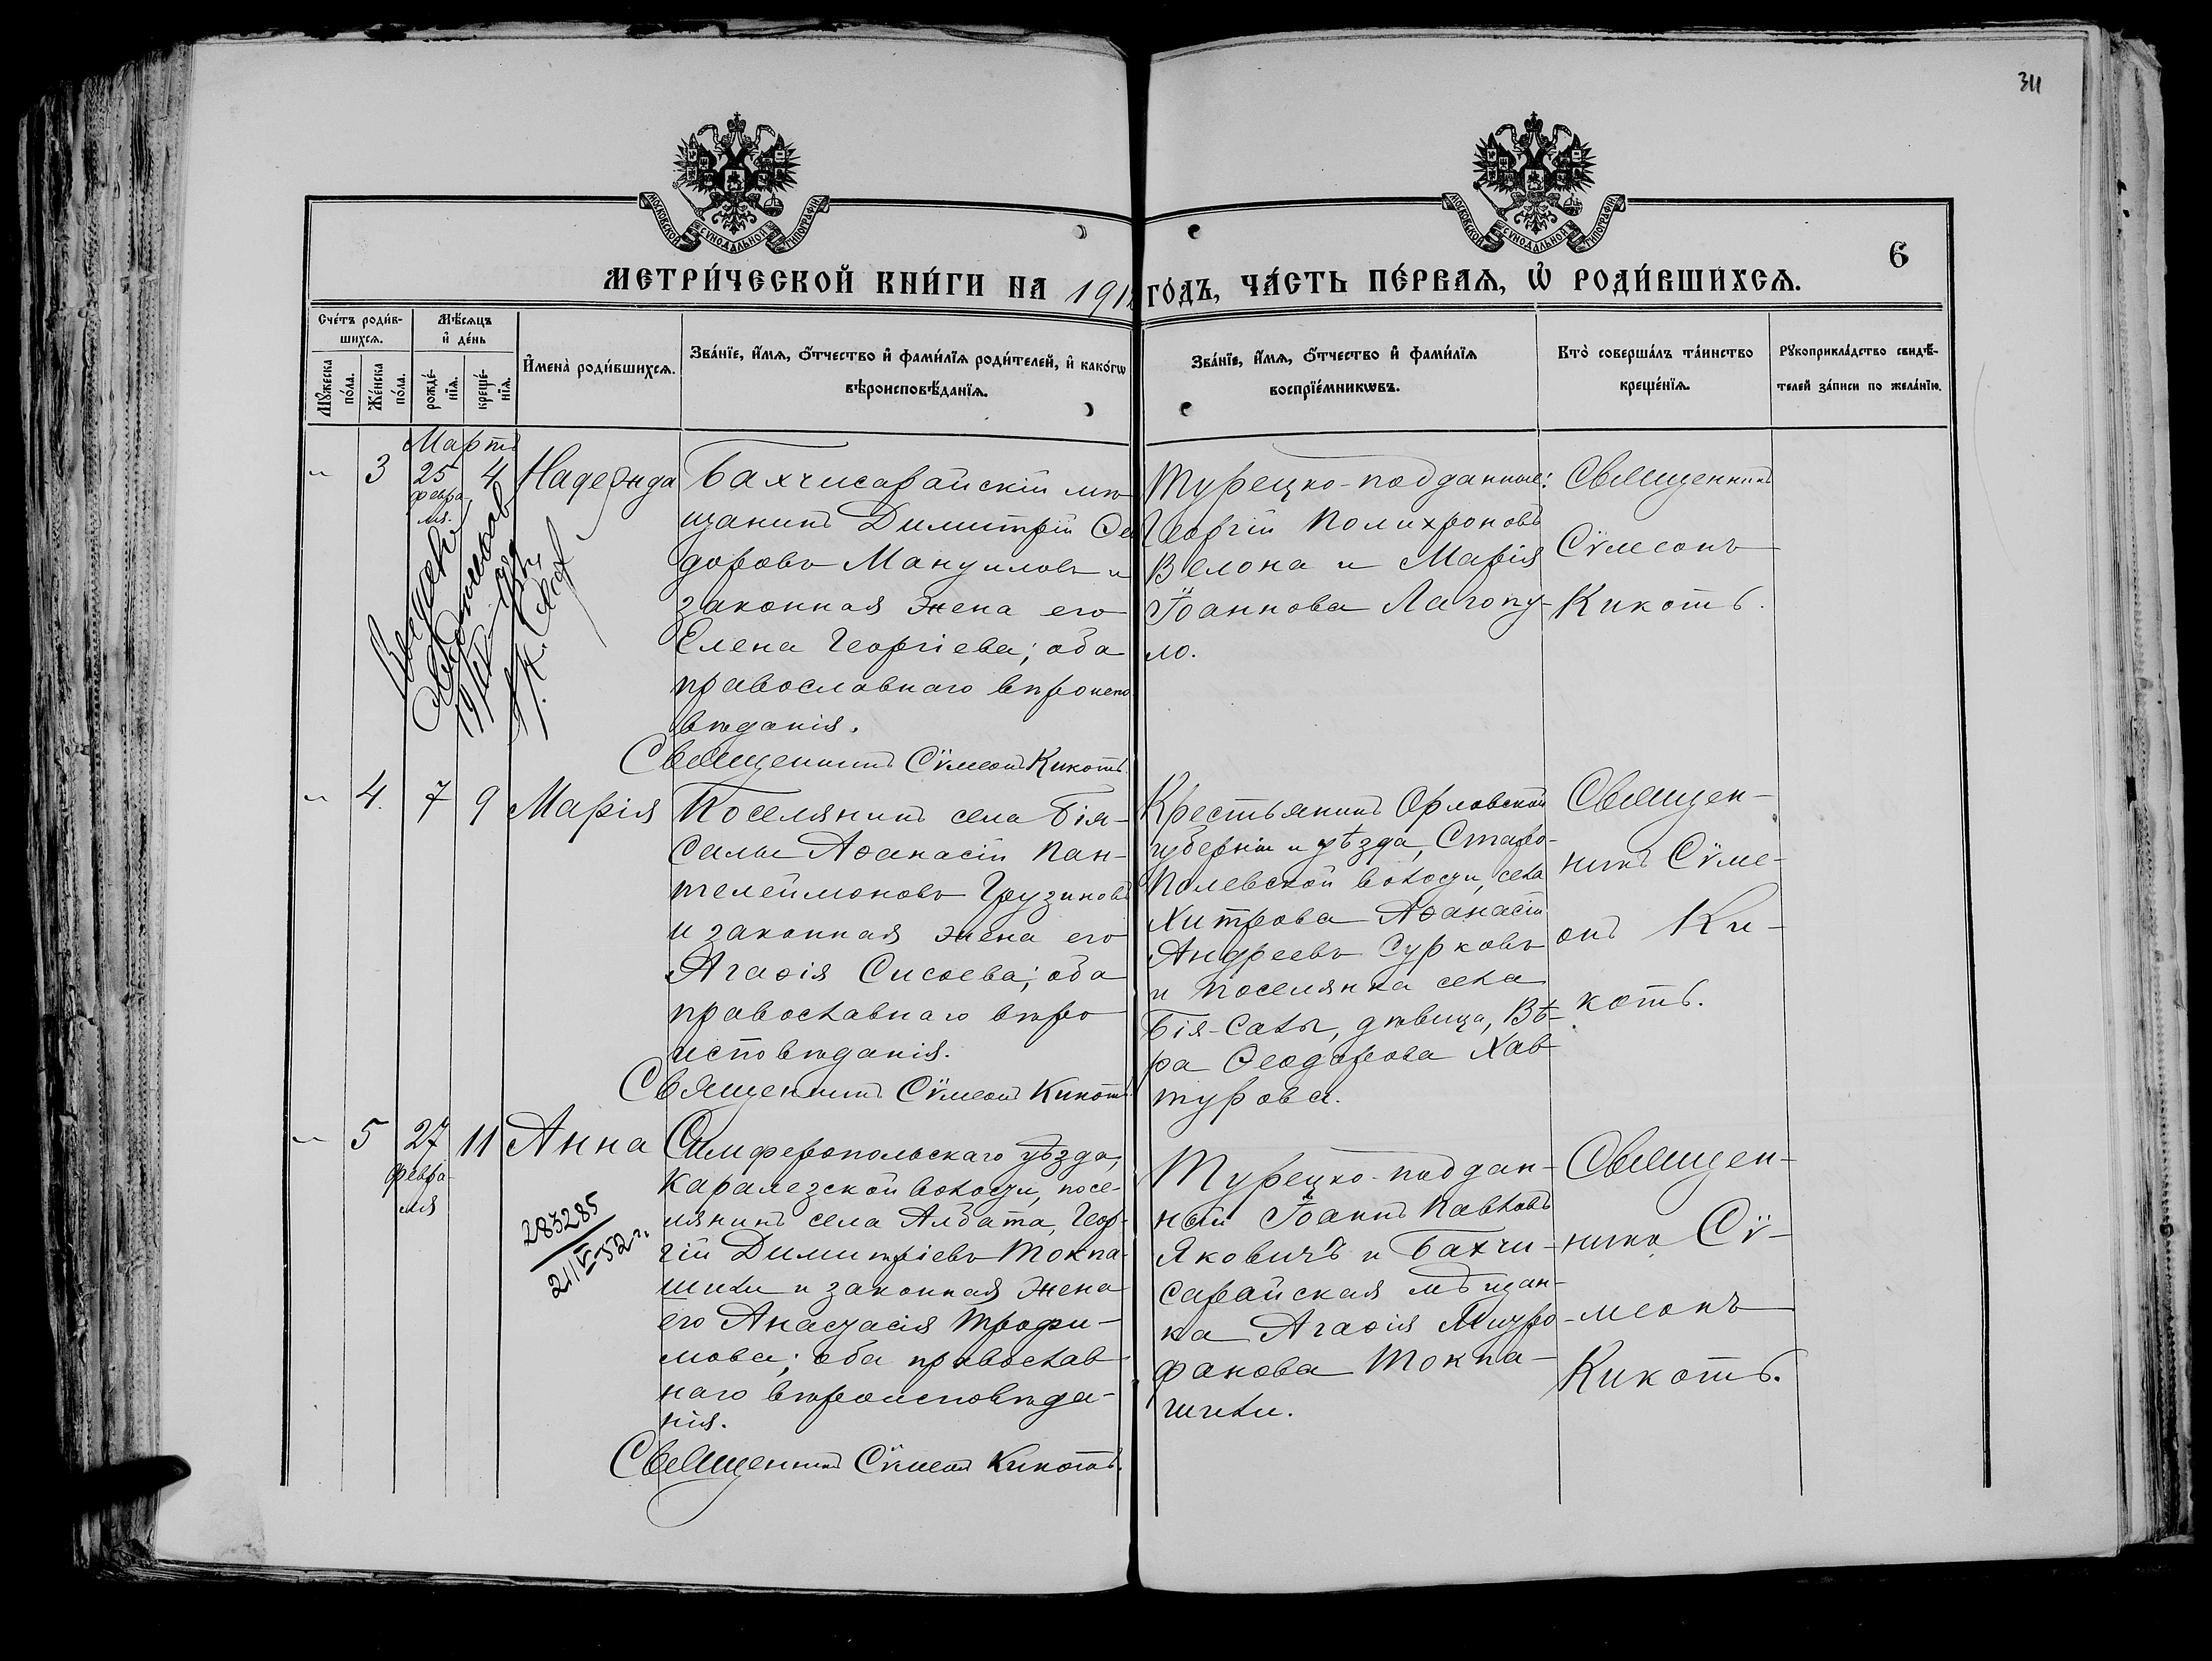 311
МОСКОВСКОЙ СѴНОДАЛЬНОЙ ТИПОГРАФІИ
МОСКОВСКОЙ СѴНОДАЛЬНОЙ ТИПОГРАФІИ
6
МЕТРИ́ЧЕСКОЙ КНИ́ГИ НА 191 ГО́ДЪ, ЧА́СТЬ ПЕ́РВАѦ, Ѡ҆ РОДИ́ВШИХСѦ.
Сче́тъ роди́в-
шихсѧ.
Мꙋ́жеска
по́ла.
Же́нска
по́ла.
Мѣ́сѧцъ
и҆ де́нь
рожде́-
нїѧ.
креще́-
нїѧ.
И҆мена̀ роди́вшихсѧ.
Зва́нїе, и҆́мѧ, ѻ҆́тчество и҆ фами́лїѧ роди́телей, и҆ како́гѡ
вѣроисповѣ́данїѧ.
Зва́нїе, и҆́мѧ, ѻ҆́тчество и҆ фами́лїѧ
воспрїе́мникѡвъ.
Кто̀ соверша́лъ та́инство
креще́нїѧ.
Рꙋкоприкла́дство свидѣ́-
телей за́писи по жела́нїю.
Мартъ
3 25 4 Надежда
февра
ля.
Бахчисарайскій мѣ
щанинъ Димитрій Ѳео
доровъ Мануиловъ и
законная жена его
Елена Георгіева; оба
православнаго вѣроиспо
вѣданія.
Священникъ Сѵмеонъ Кикоть.
Турецко-подданные:
Георгій Полихроновъ
Велона и Марія
Іоаннова Лагопу-
ло.
Священникъ
Сѵмеонъ
Кикоть.
4. 7 9 Марія
Поселянинъ села Бія-
Салы Аѳанасій Пан-
телеймоновъ Грузиновъ
и законная жена его
Агаѳія Сисоева; оба
православнаго вѣро
исповѣданія.
Священникъ Сѵмеонъ Кикоть.
Крестьянинъ Орловской
губерніи и уѣзда, Старо-
Полевской волости, села
Хитрова Аѳанасій
Андреевъ Сурковъ
и поселянка села
Бія-Салы, дѣвица, Вѣ-
ра Ѳеодорова Хав-
турова.
Священ-
никъ Сѵме-
онъ Ки-
коть.
5 27 11 Анна
февра-
ля
283285
211 VI-52 г.
Симферопольскаго уѣзда,
Каралезской волости, посе-
лянинъ села Албата, Геор-
гій Димитріевъ Токпа-
шили и законная жена
его Анастасія Трофи-
мова; оба православ-
наго вѣроисповѣда-
нія.
Священникъ Сѵмеонъ Кикоть.
Турецко-поддан-
ный Іоаннъ Павловъ
Яковичъ и Бахчи-
сарайская мѣщан-
ка Агаѳія Митро-
фанова Токпа-
шили.
Священ-
никъ Сѵ-
меонъ
Кикоть.